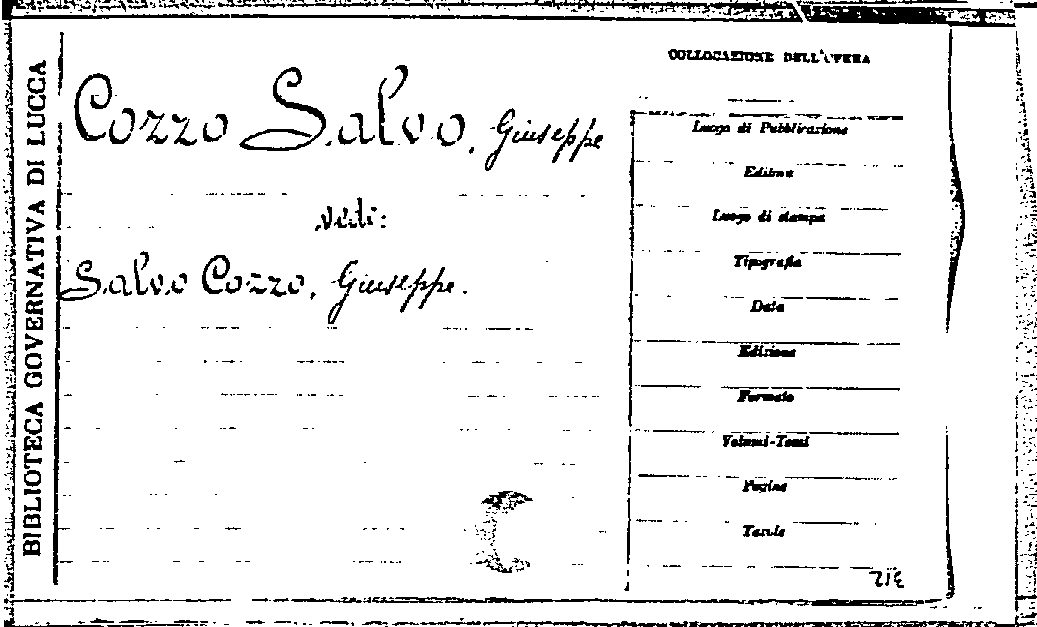 BIBLIOTECA GOVERNATIVA DI LUCCA
Cozzo Salvo, Giuseppe
vedi:
Salvo Cozzo, Giuseppe.
COLLOCAZIONE DELL'OPERA
Luogo di Pubblicazione
Editore
Luogo di stampa
Tipografia
Data
Edizione
Formato
Volumi-Tomi
Pagine
Tavole